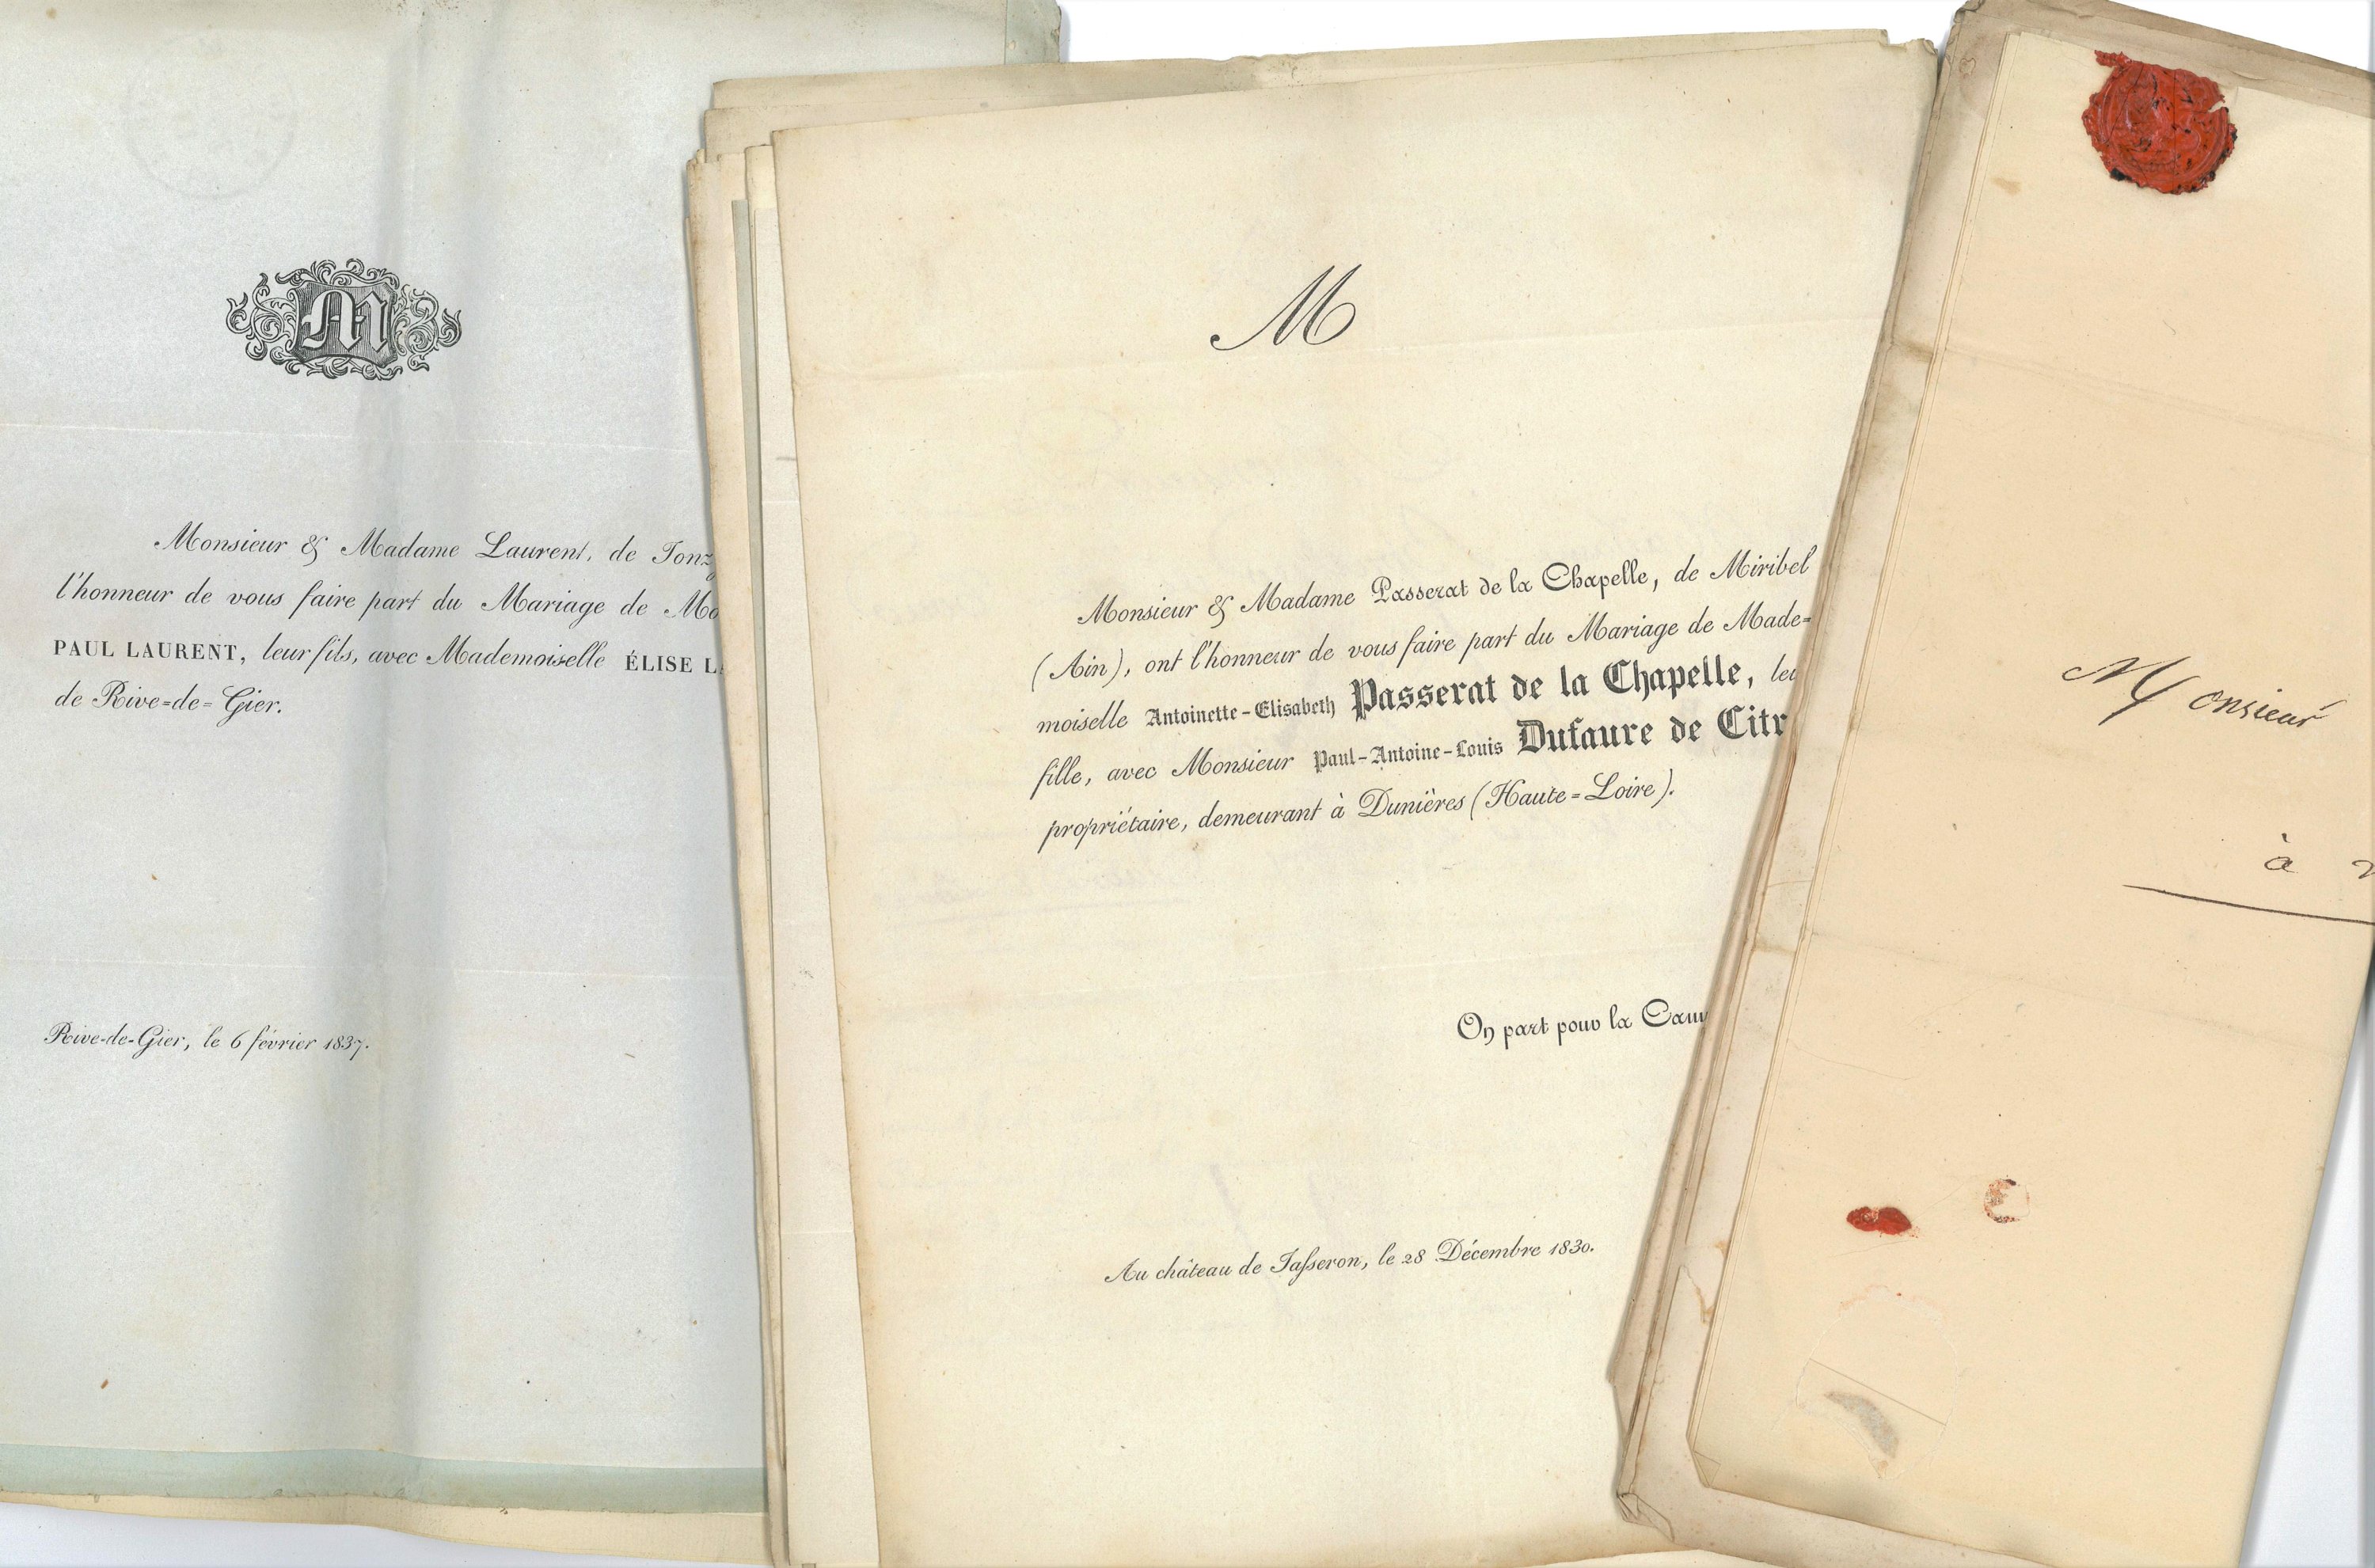 M
Monsieur & Madame Laurent, de
l'honneur de vous faire part du Mariage de
PAUL LAURENT, leur fils, avec Mademoiselle ÉLISE
de Rive=de=Gier.
Rive-de-Gier, le 6 février 1837.
M
Monsieur & Madame Passerat de la Chapelle, de Miribel
(Ain), ont l'honneur de vous faire part du Mariage de Made=
moiselle Antoinette-Elisabeth Passerat de la Chapelle,
fille, avec Monsieur Paul-Antoine-Louis Dufaure de Citr
propriétaire, demeurant à Dunières (Haute=Loire).
On part pour la
Au château de Jasseron, le 28 Décembre 1830.
Monsieur
à